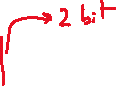 2 bit